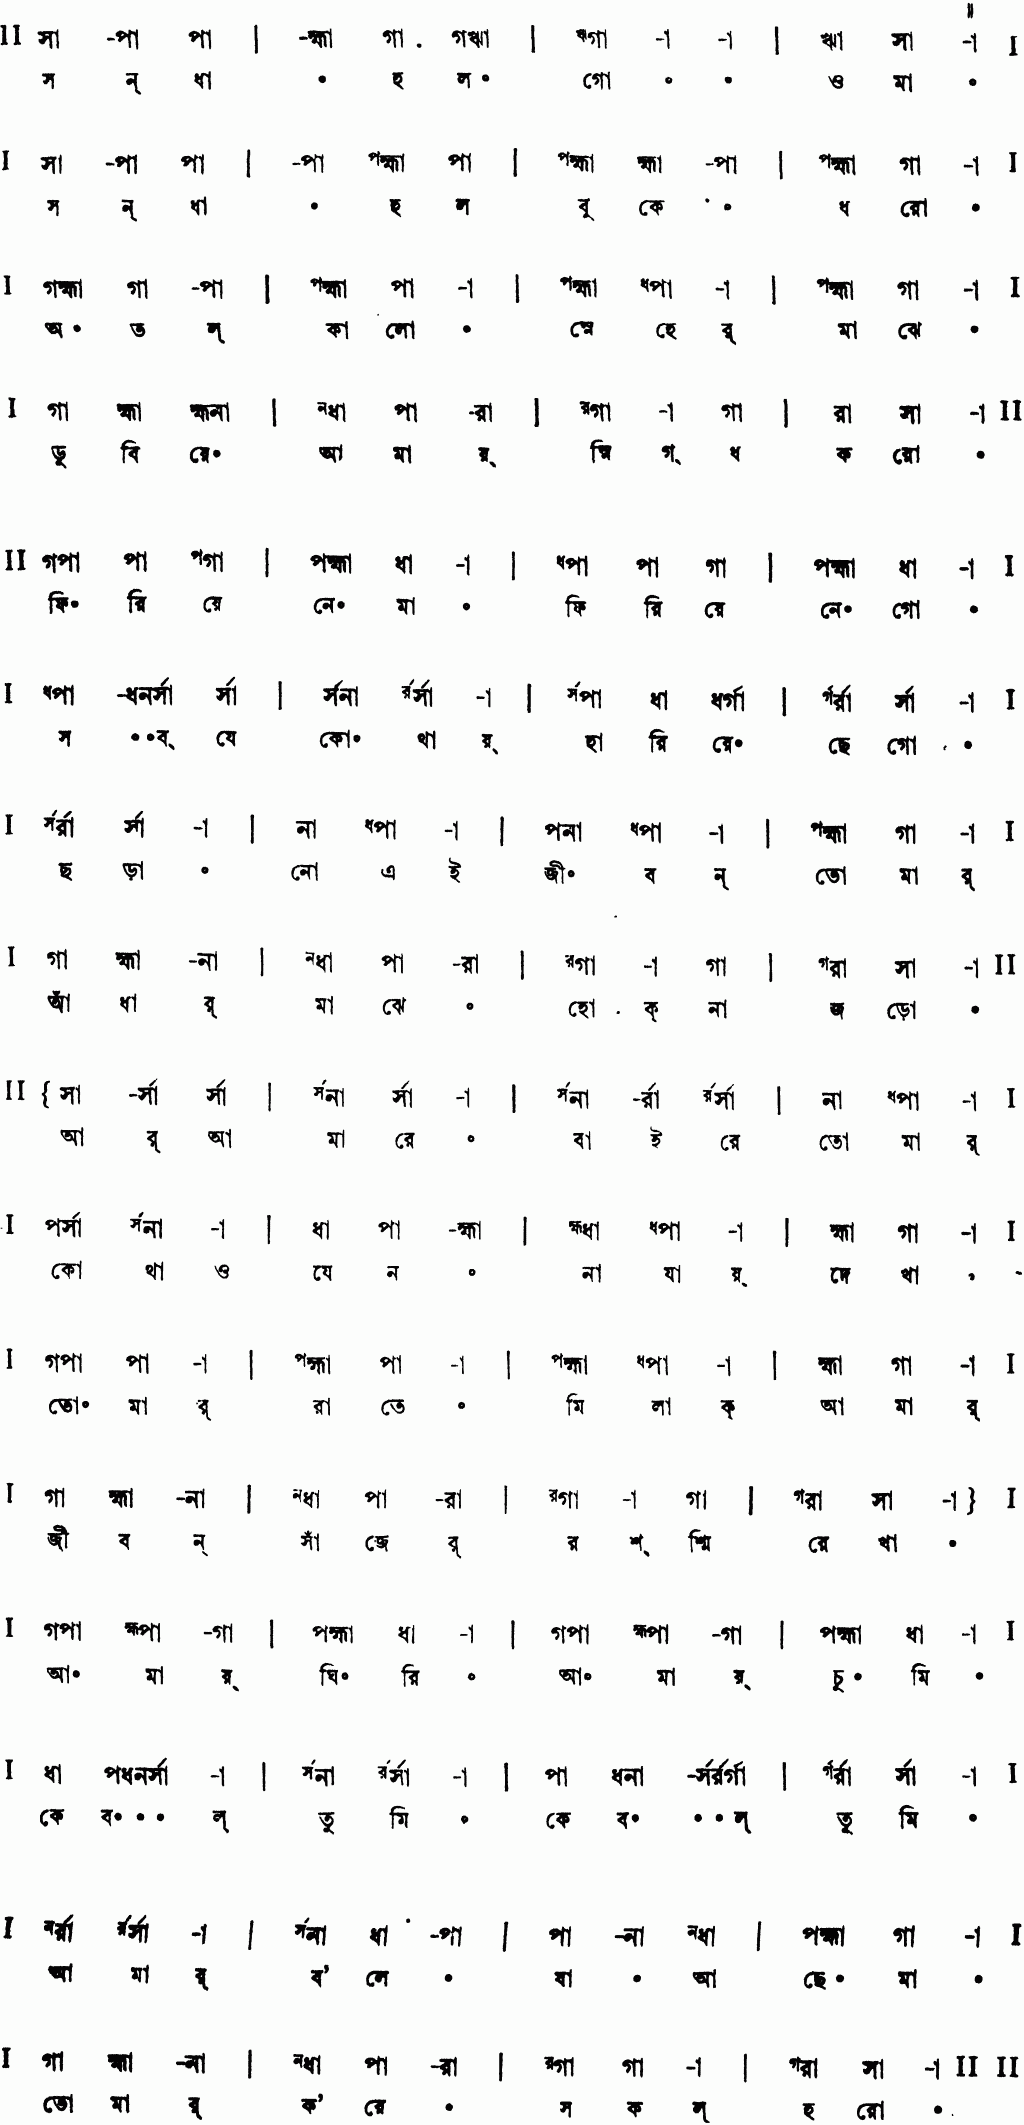 ॥
II সা -পা পা | -হ্মা গা . গঋা | ঋগা -া -া | ঋা সা -া I
স ন্ ধা • হ ল• গো • • ও মা •
I সা -পা পা | -পা পহ্মা পা | পহ্মা হ্মা -পা | পহ্মা গা -া I
স ন্ ধা • হ ল বু কে • ধ রো •
I গহ্মা গা -পা | পহ্মা পা -া | পহ্মা ধপা -া | পহ্মা গা -া I
অ• ত ল্ কা লো • স্নে হে র্ মা ঝে •
I গা হ্মা হ্মনা | নধা পা -রা | রগা -া গা | রা সা -া II
ডু বি য়ে• আ মা য়্ স্নি গ্ ধ ক রো •
II গপা পা পগা | পহ্মা ধা -া | ধপা পা গা | পহ্মা ধা -া I
ফি• রি য়ে নে• মা • ফি রি য়ে নে• গো •
I ধপা -ধনর্সা র্সা | র্সনা র্রর্সা -া | র্সপা ধা ধর্গা | র্গর্রা র্সা -া I
স ••ব্ যে কো• থা য়্ হা রি য়ে• ছে গো •
I র্সর্রা র্সা -া | না ধপা -া | পনা ধপা -া | পহ্মা গা -া I
ছ ড়া • নো এ ই জী• ব ন্ তো মা র্
I গা হ্মা -না | নধা পা -রা | রগা -া গা | গরা সা -া II
আঁ ধা র্ মা ঝে • হো ক্ না জ ড়ো •
II { সা -র্সা র্সা | র্সনা র্সা -া | র্সনা -র্রা র্রর্সা | না ধপা -া I
আ র্ আ মা রে • বা ই রে তো মা র্
I পর্সা র্সনা -া | ধা পা -হ্মা | হ্মধা ধপা -া | হ্মা গা -া I
কো থা ও যে ন • না যা য়্ দে খা •
I গপা পা -া | পহ্মা পা -া | পহ্মা ধপা -া | হ্মা গা -া I
তো• মা র্ রা তে • মি লা ক্ আ মা র্
I গা হ্মা -না | নধা পা -রা | রগা -া গা | গরা সা -া } I
জী ব ন্ সাঁ জে র্ র শ্ শ্মি রে খা •
I গপা হ্মপা -গা | পহ্মা ধা -া | গপা হ্মপা -গা | পহ্মা ধা -া I
আ• মা য়্ ঘি• রি • আ• মা য়্ চু• মি •
I ধা পধনর্সা -া | র্সনা র্রর্সা -া | পা ধনা -র্সর্রর্গা | র্গর্রা র্সা -া I
কে ব••• ল্ তু মি • কে ব• ••ল্ তু মি •
I নর্রা র্রর্সা -া | র্সনা ধা -পা | পা -না নধা | পহ্মা গা -া I
আ মা র্ ব’ লে • যা • আ ছে• মা •
I গা হ্মা -না | নধা পা -রা | রগা গা -া | গরা সা -া II II
তো মা র্ ক’ রে • স ক ল্ হ রো •